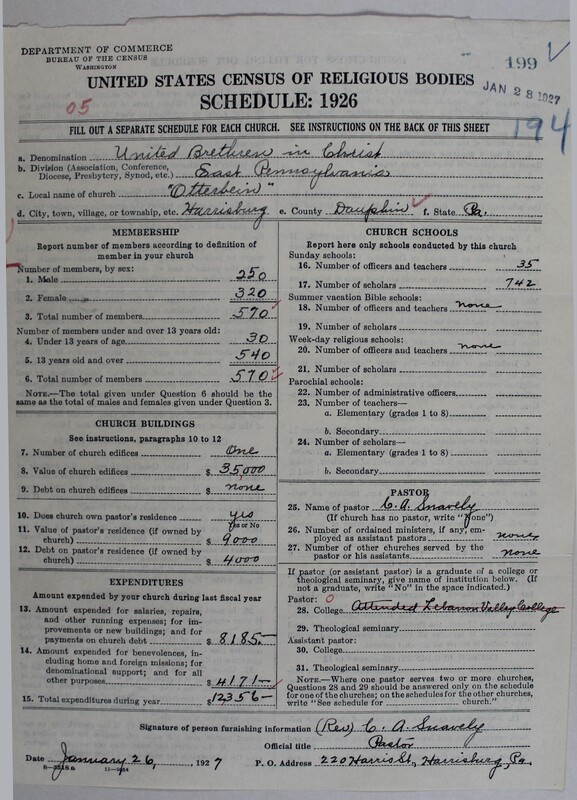 DEPARTMENT OF COMMERCE
BUREAU OF THE CENSUS
WASHINGTON
199
JAN 28 1927
194
UNITED STATES CENSUS OF RELIGIOUS BODIES
SCHEDULE: 1926
05
FILL OUT A SEPARATE SCHEDULE FOR EACH CHURCH. SEE INSTRUCTIONS ON THE BACK OF THIS SHEET
a. Denomination United Brethren in Christ
b. Division (Association, Conference, Diocese, Presbytery, Synod, etc.) East Pennsylvania
c. Local name of church "Otterbein"
d. City, town, village, or township, etc. Harrisburg e. County Dauphin f. State Pa.
MEMBERSHIP
Report number of members according to definition of
member in your church
Number of members, by sex:
1. Male 250
2. Female 320
3. Total number of members 570
Number of members under and over 13 years old:
4. Under 13 years of age 30
5. 13 years old and over 540
6. Total number of members 570
NOTE.—The total given under Question 6 should be
same as the total of males and females given under Question 3.
CHURCH BUILDINGS
See instructions, paragraphs 10 to 12
7. Number of church edifices One
8. Value of church edifices $ 35,000
9. Debt on church edifices $ none
10. Does church own pastor's residence yes
Yes or No
11. Value of pastor's residence (if owned by
church) $ 9000
12. Debt on pastor's residence (if owned by
church) $ 4000
EXPENDITURES
Amount expended by your church during last fiscal year
13. Amount expended for salaries, repairs,
and other running expenses; for im-
provements or new buildings; and for
payments on church debt $ 8185—
14. Amount expended for benevolences, in-
cluding home and foreign missions; for
denominational support; and for all
other purposes $ 4171—
15. Total expenditures during year $ 12356—
CHURCH SCHOOLS
Report here only schools conducted by this church
Sunday schools:
16. Number of officers and teachers 35
17. Number of scholars 742
Summer vacation Bible schools:
18. Number of officers and teachers none
19. Number of scholars
Week-day religious schools:
20. Number of officers and teachers none
21. Number of scholars
Parochial schools:
22. Number of administrative officers
23. Number of teachers—
a. Elementary (grades 1 to 8)
b. Secondary
24. Number of scholars—
a. Elementary (grades 1 to 8)
b. Secondary
PASTOR
25. Name of pastor C. A. Snavely
(If church has no pastor, write "None")
26. Number of ordained ministers, if any, em-
ployed as assistant pastors none
27. Number of other churches served by the
pastor or his assistants none
If pastor (or assistant pastor) is a graduate of a college or
theological seminary, give name of institution below. (If
not a graduate, write "No" in the space indicated.)
Pastor: 0
28. College Attended Lebanon Valley College
29. Theological seminary
Assistant pastor:
30. College
31. Theological seminary
NOTE.—Where one pastor serves two or more churches,
Questions 28 and 29 should be answered only on the schedule
for one of the churches; on the schedules for the other churches,
write "See schedule for ........ church."
Signature of person furnishing information (Rev) C. A. Snavely
Official title Pastor
Date January 26, 1927 P. O. Address 220 Harris St., Harrisburg, Pa.